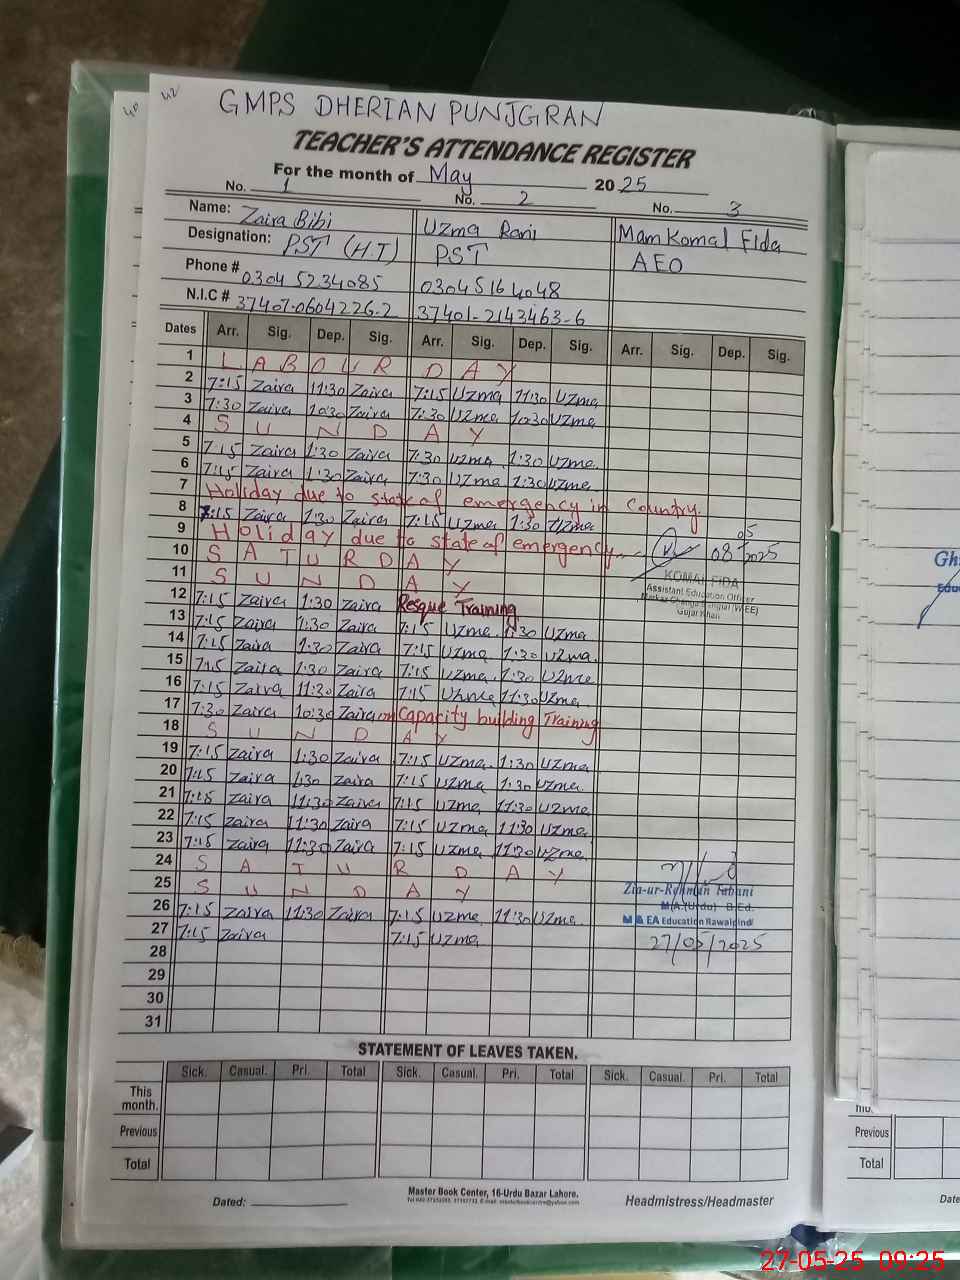 42
GMPS DHERIAN PUNJGRAN
TEACHER'S ATTENDANCE REGISTER
For the month of May 2025
No. 1 No. 2 No. 3
Name: Zaira Bibi Uzma Rani Mam Komal Fida
Designation: PST (H.T) PST AEO
Phone # 0304 5234085 03045164048
N.I.C # 37407-0604226-2 37401-2143463-6
Dates Arr. Sig. Dep. Sig. Arr. Sig. Dep. Sig. Arr. Sig. Dep. Sig.
1 LABOUR DAY
2 7:15 Zaira 11:30 Zaira 7:15 Uzma 11:30 Uzma
3 7:30 Zaira 10:30 Zaira 7:30 Uzma 10:30 Uzma
4 SUNDAY
5 7:15 Zaira 1:30 Zaira 7:30 Uzma 1:30 Uzma
6 7:15 Zaira 1:30 Zaira 7:30 Uzma 1:30 Uzma
7 Holiday due to state of emergency in Country.
8 7:15 Zaira 1:30 Zaira 7:15 Uzma 1:30 Uzma
9 Holiday due to state of emergency
08 05 2025
10 SATURDAY
11 SUNDAY
KOMAL FIDA
Assistant Education Officer
Gujar Khan
12 7:15 Zaira 1:30 Zaira Resque Training
13 7:15 Zaira 1:30 Zaira 7:15 Uzma 1:30 Uzma
14 7:15 Zaira 1:30 Zaira 7:15 Uzma 1:30 Uzma
15 7:15 Zaira 1:30 Zaira 7:15 Uzma 1:30 Uzma
16 7:15 Zaira 11:30 Zaira 7:15 Uzma 11:30 Uzma
17 7:30 Zaira 10:30 Zaira on Capacity building Training
18 SUNDAY
19 7:15 Zaira 1:30 Zaira 7:15 Uzma 1:30 Uzma
20 7:15 Zaira 1:30 Zaira 7:15 Uzma 1:30 Uzma
21 7:15 Zaira 11:30 Zaira 7:15 Uzma 11:30 Uzma
22 7:15 Zaira 11:30 Zaira 7:15 Uzma 11:30 Uzma
23 7:15 Zaira 11:30 Zaira 7:15 Uzma 11:30 Uzma
24 SATURDAY
25 SUNDAY
Zia-ur-Rehman Tabani
M.A.(Urdu) B.Ed.
26 7:15 Zaira 11:30 Zaira 7:15 Uzma 11:30 Uzma
M & EA Education Rawalpindi
27 7:15 Zaira 7:15 Uzma
27/05/2025
28
29
30
31
STATEMENT OF LEAVES TAKEN.
Sick. Casual. Pri. Total Sick. Casual. Pri. Total Sick. Casual. Pri. Total
This month.
Previous
Total
Dated:
Master Book Center, 16-Urdu Bazar Lahore.
Headmistress/Headmaster
Gh
Edu
Previous
Total
Date
27-05-25 09:25